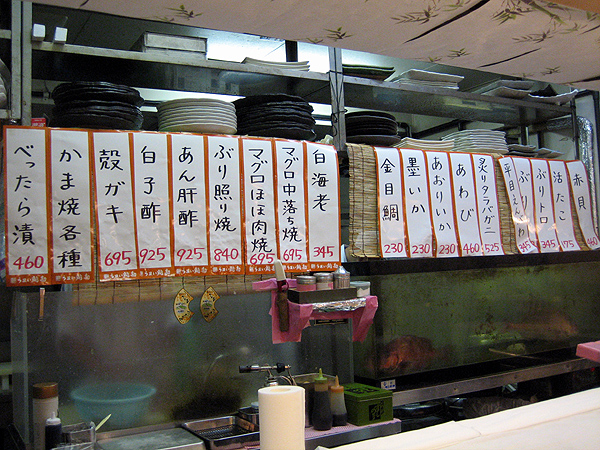 べったら漬
460
かま焼各種
殻ガキ
695
白子酢
925
あん肝酢
925
ぶり照り焼
840
マグロほほ肉焼
695
マグロ中落ち焼
695
白海老
345
金目鯛
230
墨いか
230
あおりいか
230
あわび
460
炙りタラバガニ
525
平目えんがわ
ぶりカマ
345
ぶりトロ
345
活たこ
175
赤貝
460